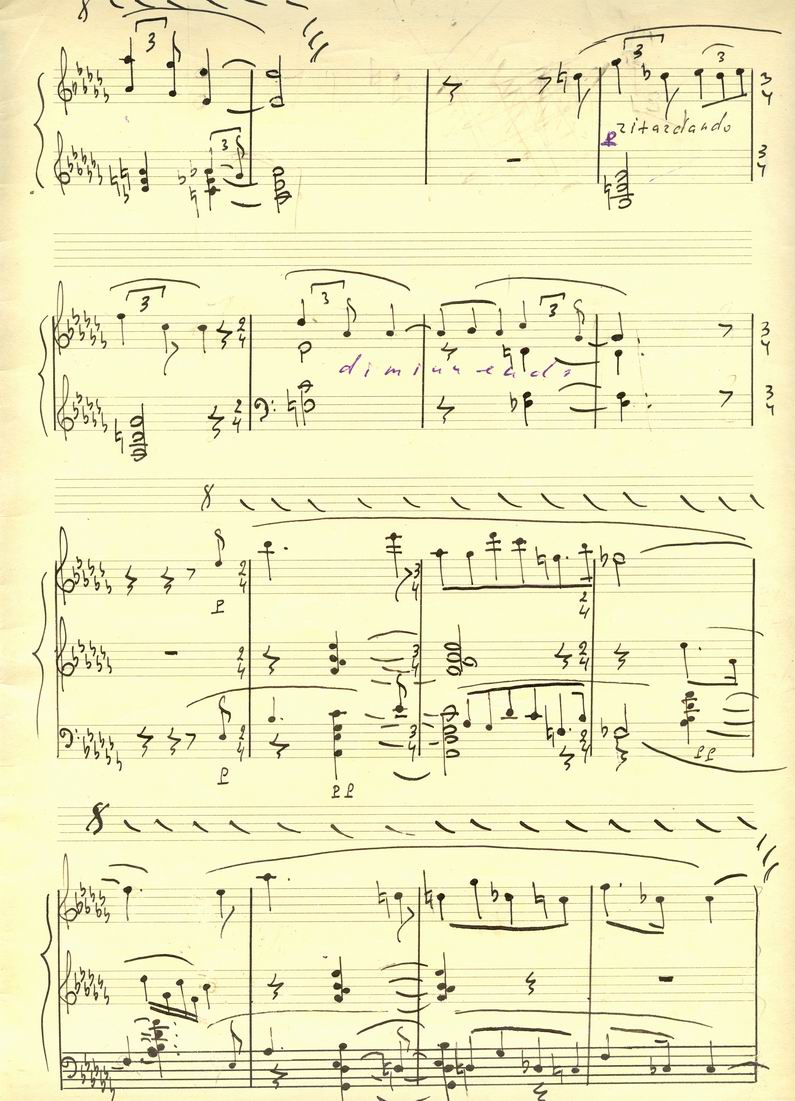 8
3
3
3
3
4
ritardando
p
3
3
4
3
2
4
3
3
3
4
diminuendo
2
4
3
4
8
2
4
p
3
4
2
4
2
4
3
4
2
4
2
4
p
3
4
2
4
pp
pp
8